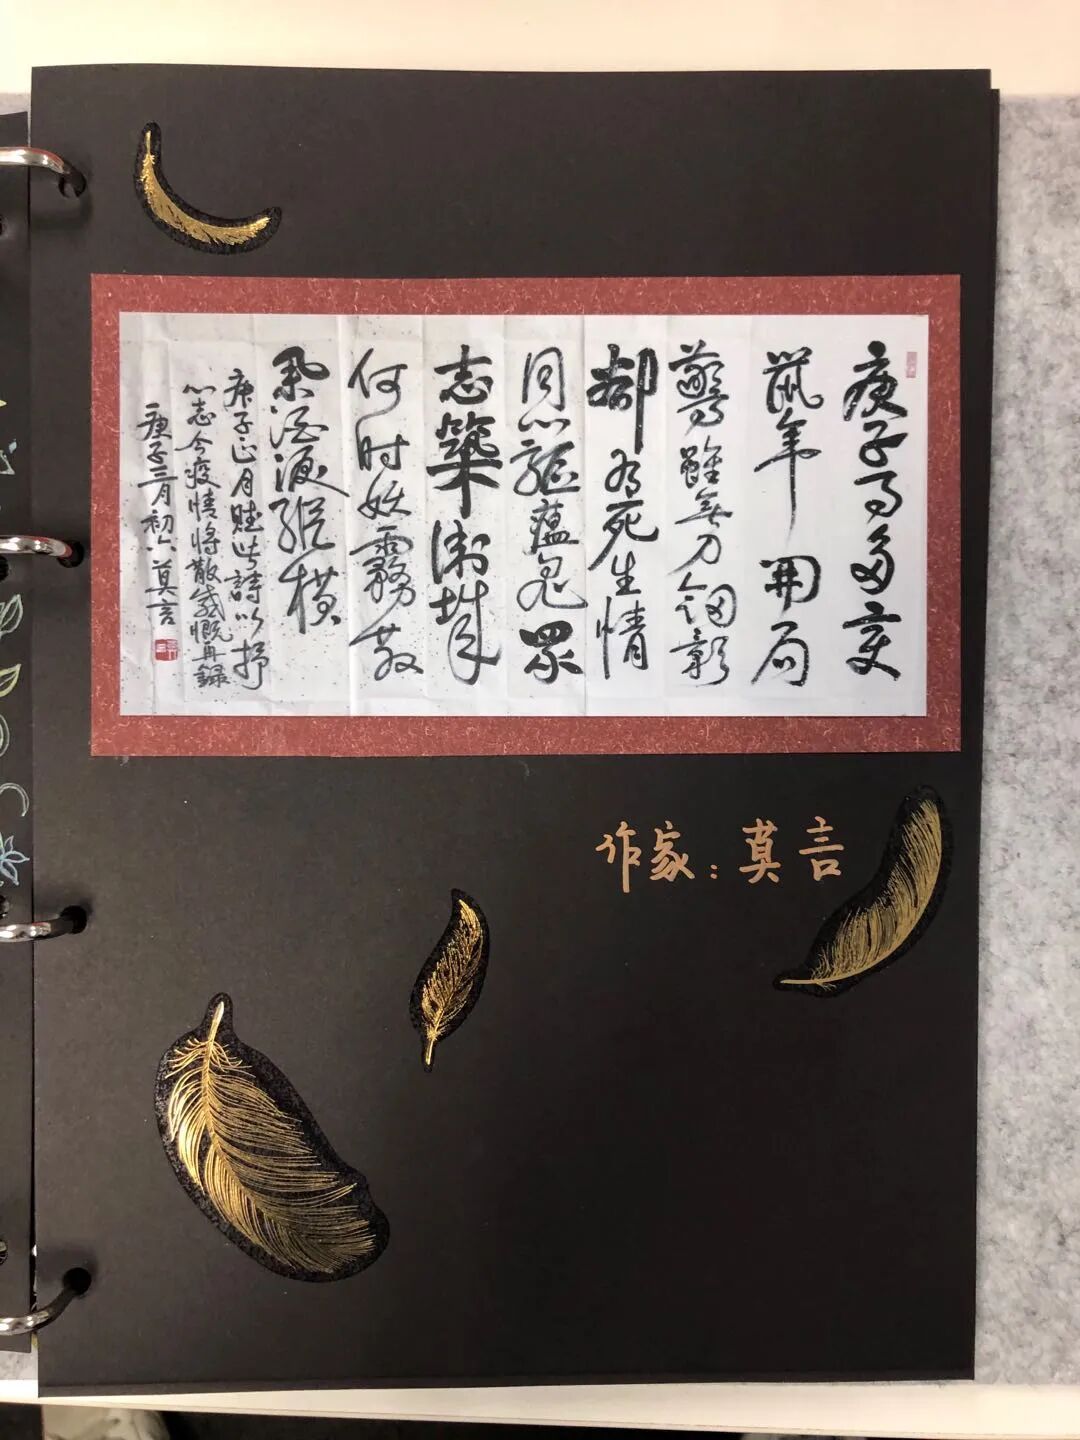 庚子事多变
鼠年開局
驚雖無刀劍影
卻有死生情
同心驅瘟鬼眾
志築衛城
何时妖霧散
酒淚縱橫
庚子正月賦此詩以抒
心志今疫情將散感慨再錄
庚子三月初六莫言
作家：莫言